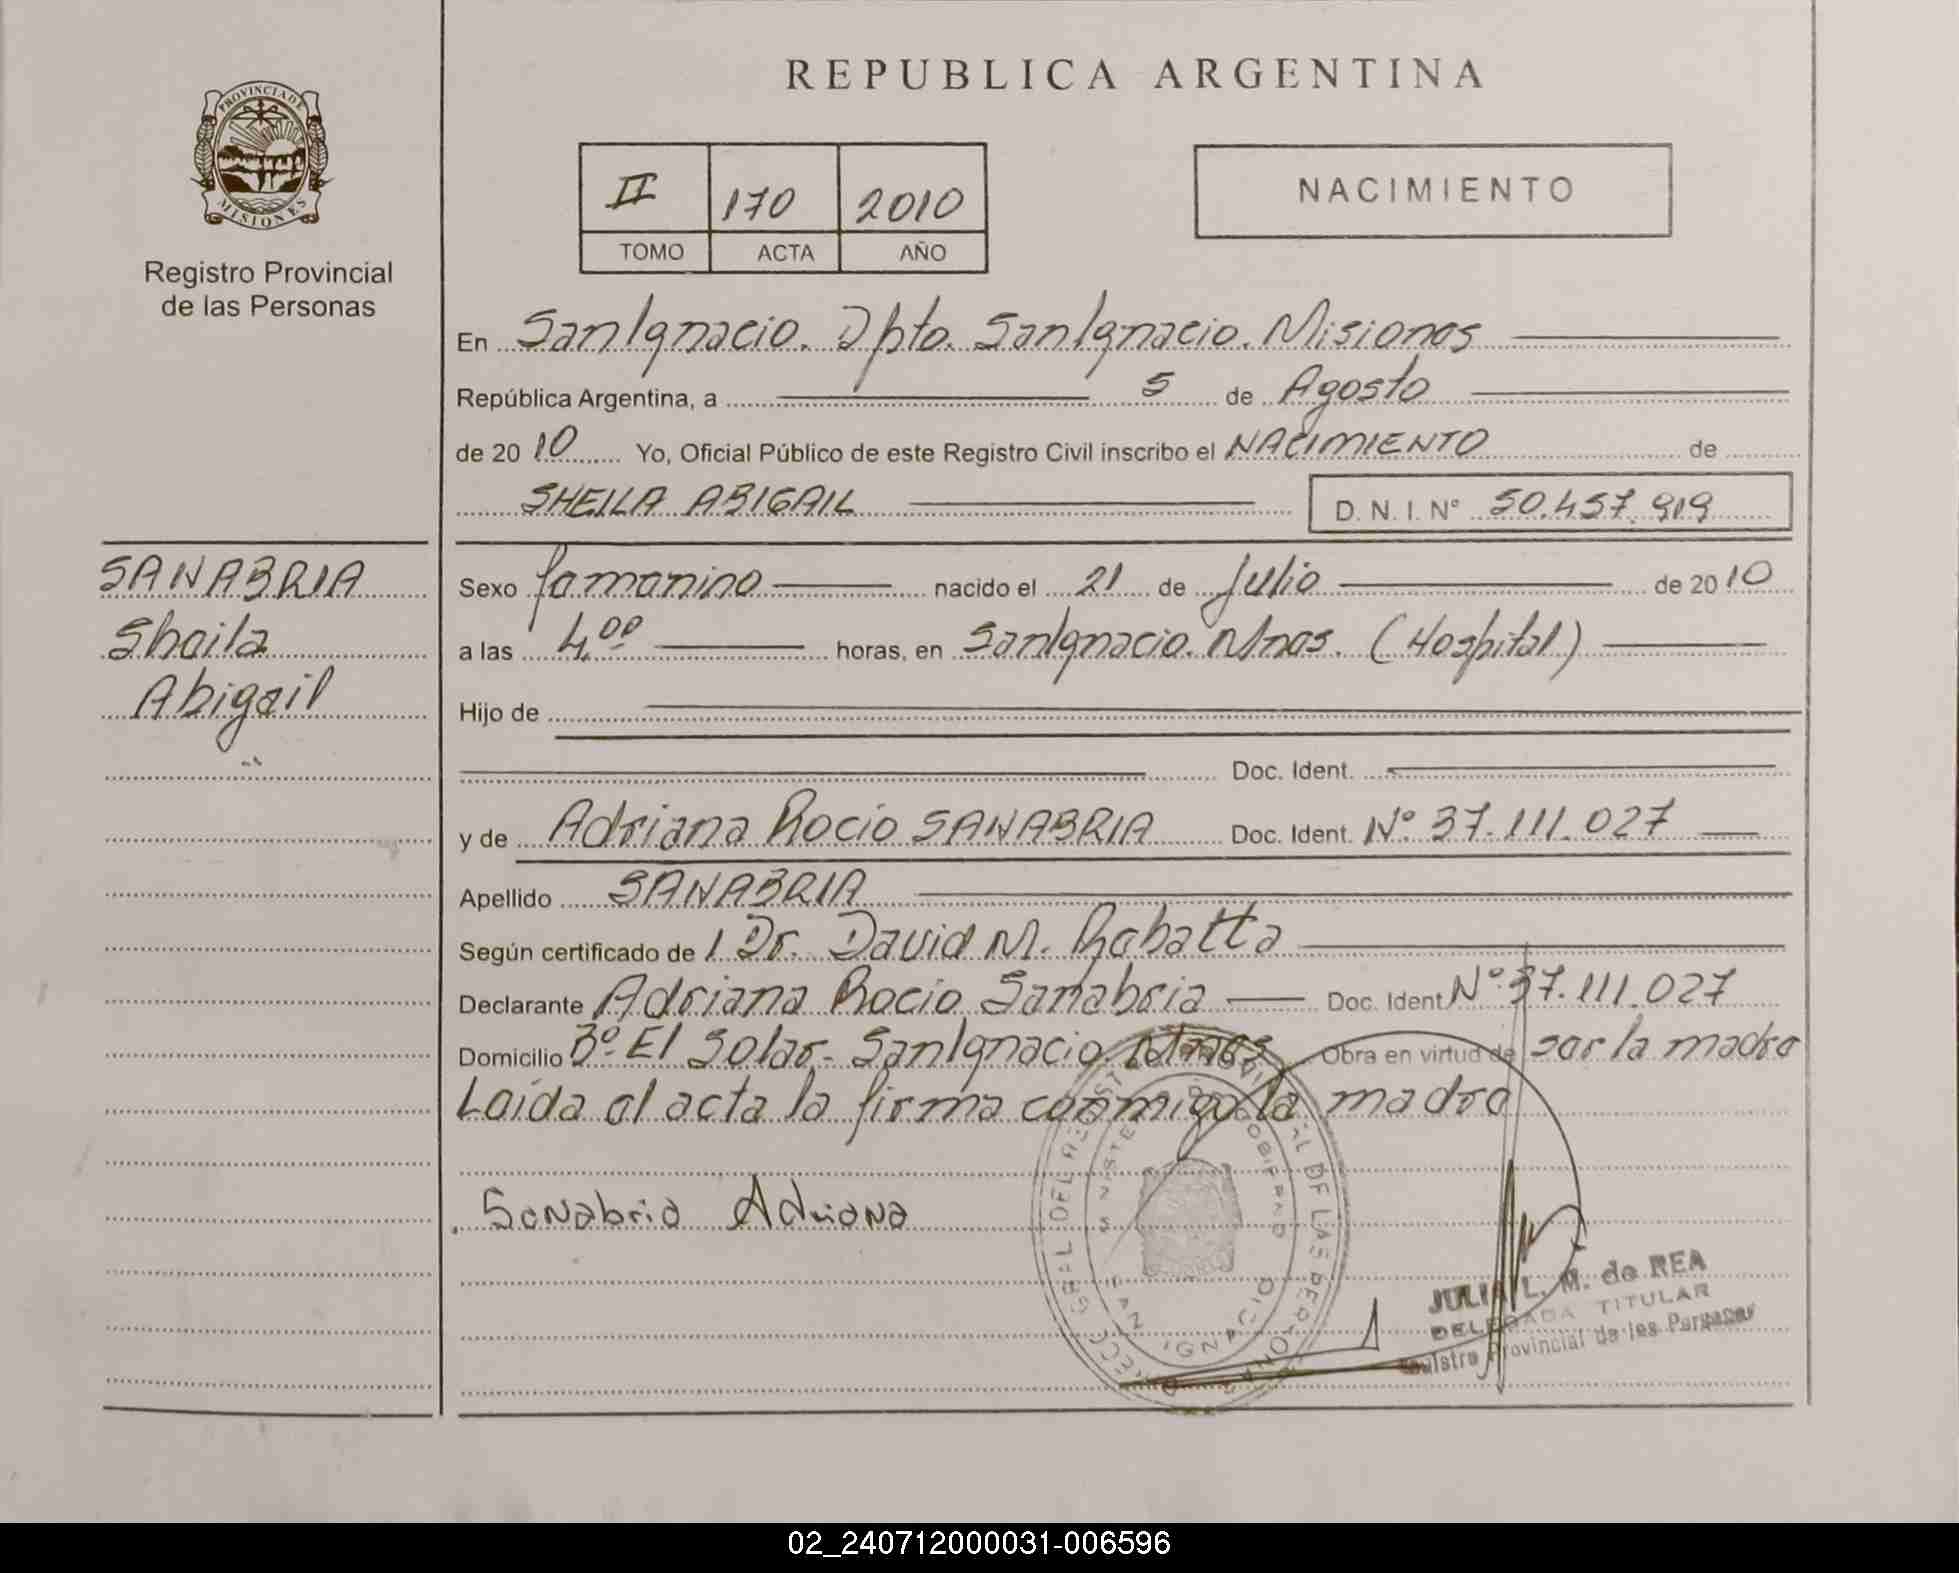 REPUBLICA ARGENTINA
PROVINCIA DE MISIONES
Registro Provincial
de las Personas
II 170 2010
TOMO ACTA AÑO
NACIMIENTO
En San Ignacio. Dpto. San Ignacio. Misiones
República Argentina, a 5 de Agosto
de 20 10 Yo, Oficial Público de este Registro Civil inscribo el NACIMIENTO de
SHEILA ABIGAIL D. N. I. Nº 50.457.919
SANABRIA
Sheila
Abigail
Sexo femenino nacido el 21 de Julio de 20 10
a las 4,00 horas, en San Ignacio. Mnes. (Hospital)
Hijo de
Doc. Ident.
y de Adriana Rocio SANABRIA Doc. Ident. Nº 37.111.027
Apellido SANABRIA
Según certificado de l Dr. David M. Rebatta
Declarante Adriana Rocio Sanabria Doc. Ident Nº 37.111.027
Domicilio Bº El Solar- San Ignacio. Mnes Obra en virtud de ser la madre
Leida el acta la firma conmigo la madre
Sanabria Adriana
DIRECC. GRAL. DEL REGISTRO PROVINCIAL DE LAS PERSONAS
MINISTERIO DE GOBIERNO
SAN IGNACIO
JULIA L. M. de REA
DELEGADA TITULAR
Registro Provincial de las Personas
02_240712000031-006596